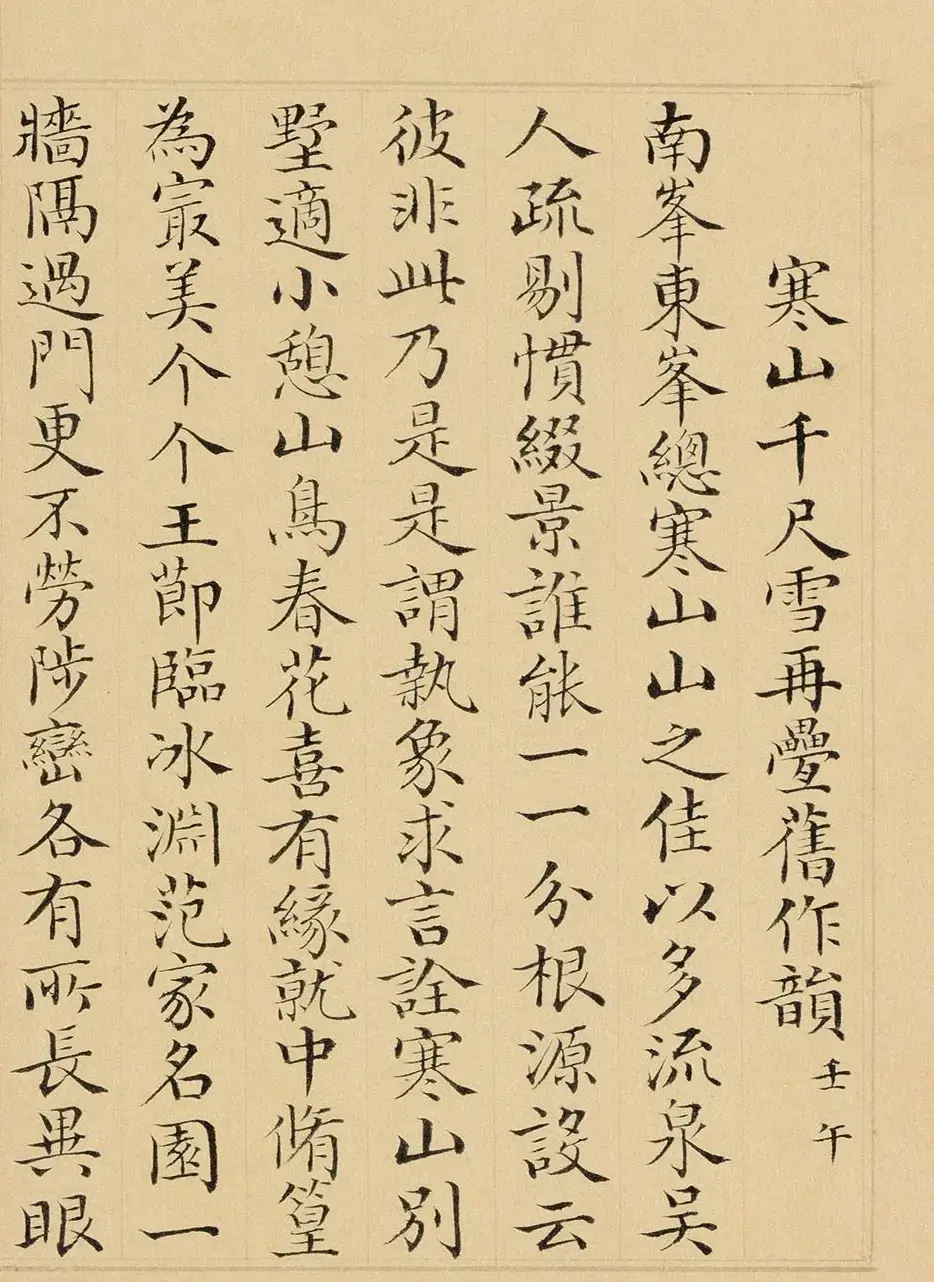 寒山千尺雪再疊舊作韻壬午
南峯東峯總寒山山之佳以多流泉吴
人疏剔慣綴景誰能一一分根源設云
彼非此乃是是謂執象求言詮寒山別
墅適小憩山鳥春花喜有緣就中脩篁
為冣美个个王莭臨冰淵范家名園一
牆隔過門更不勞陟巒各有所長異眼